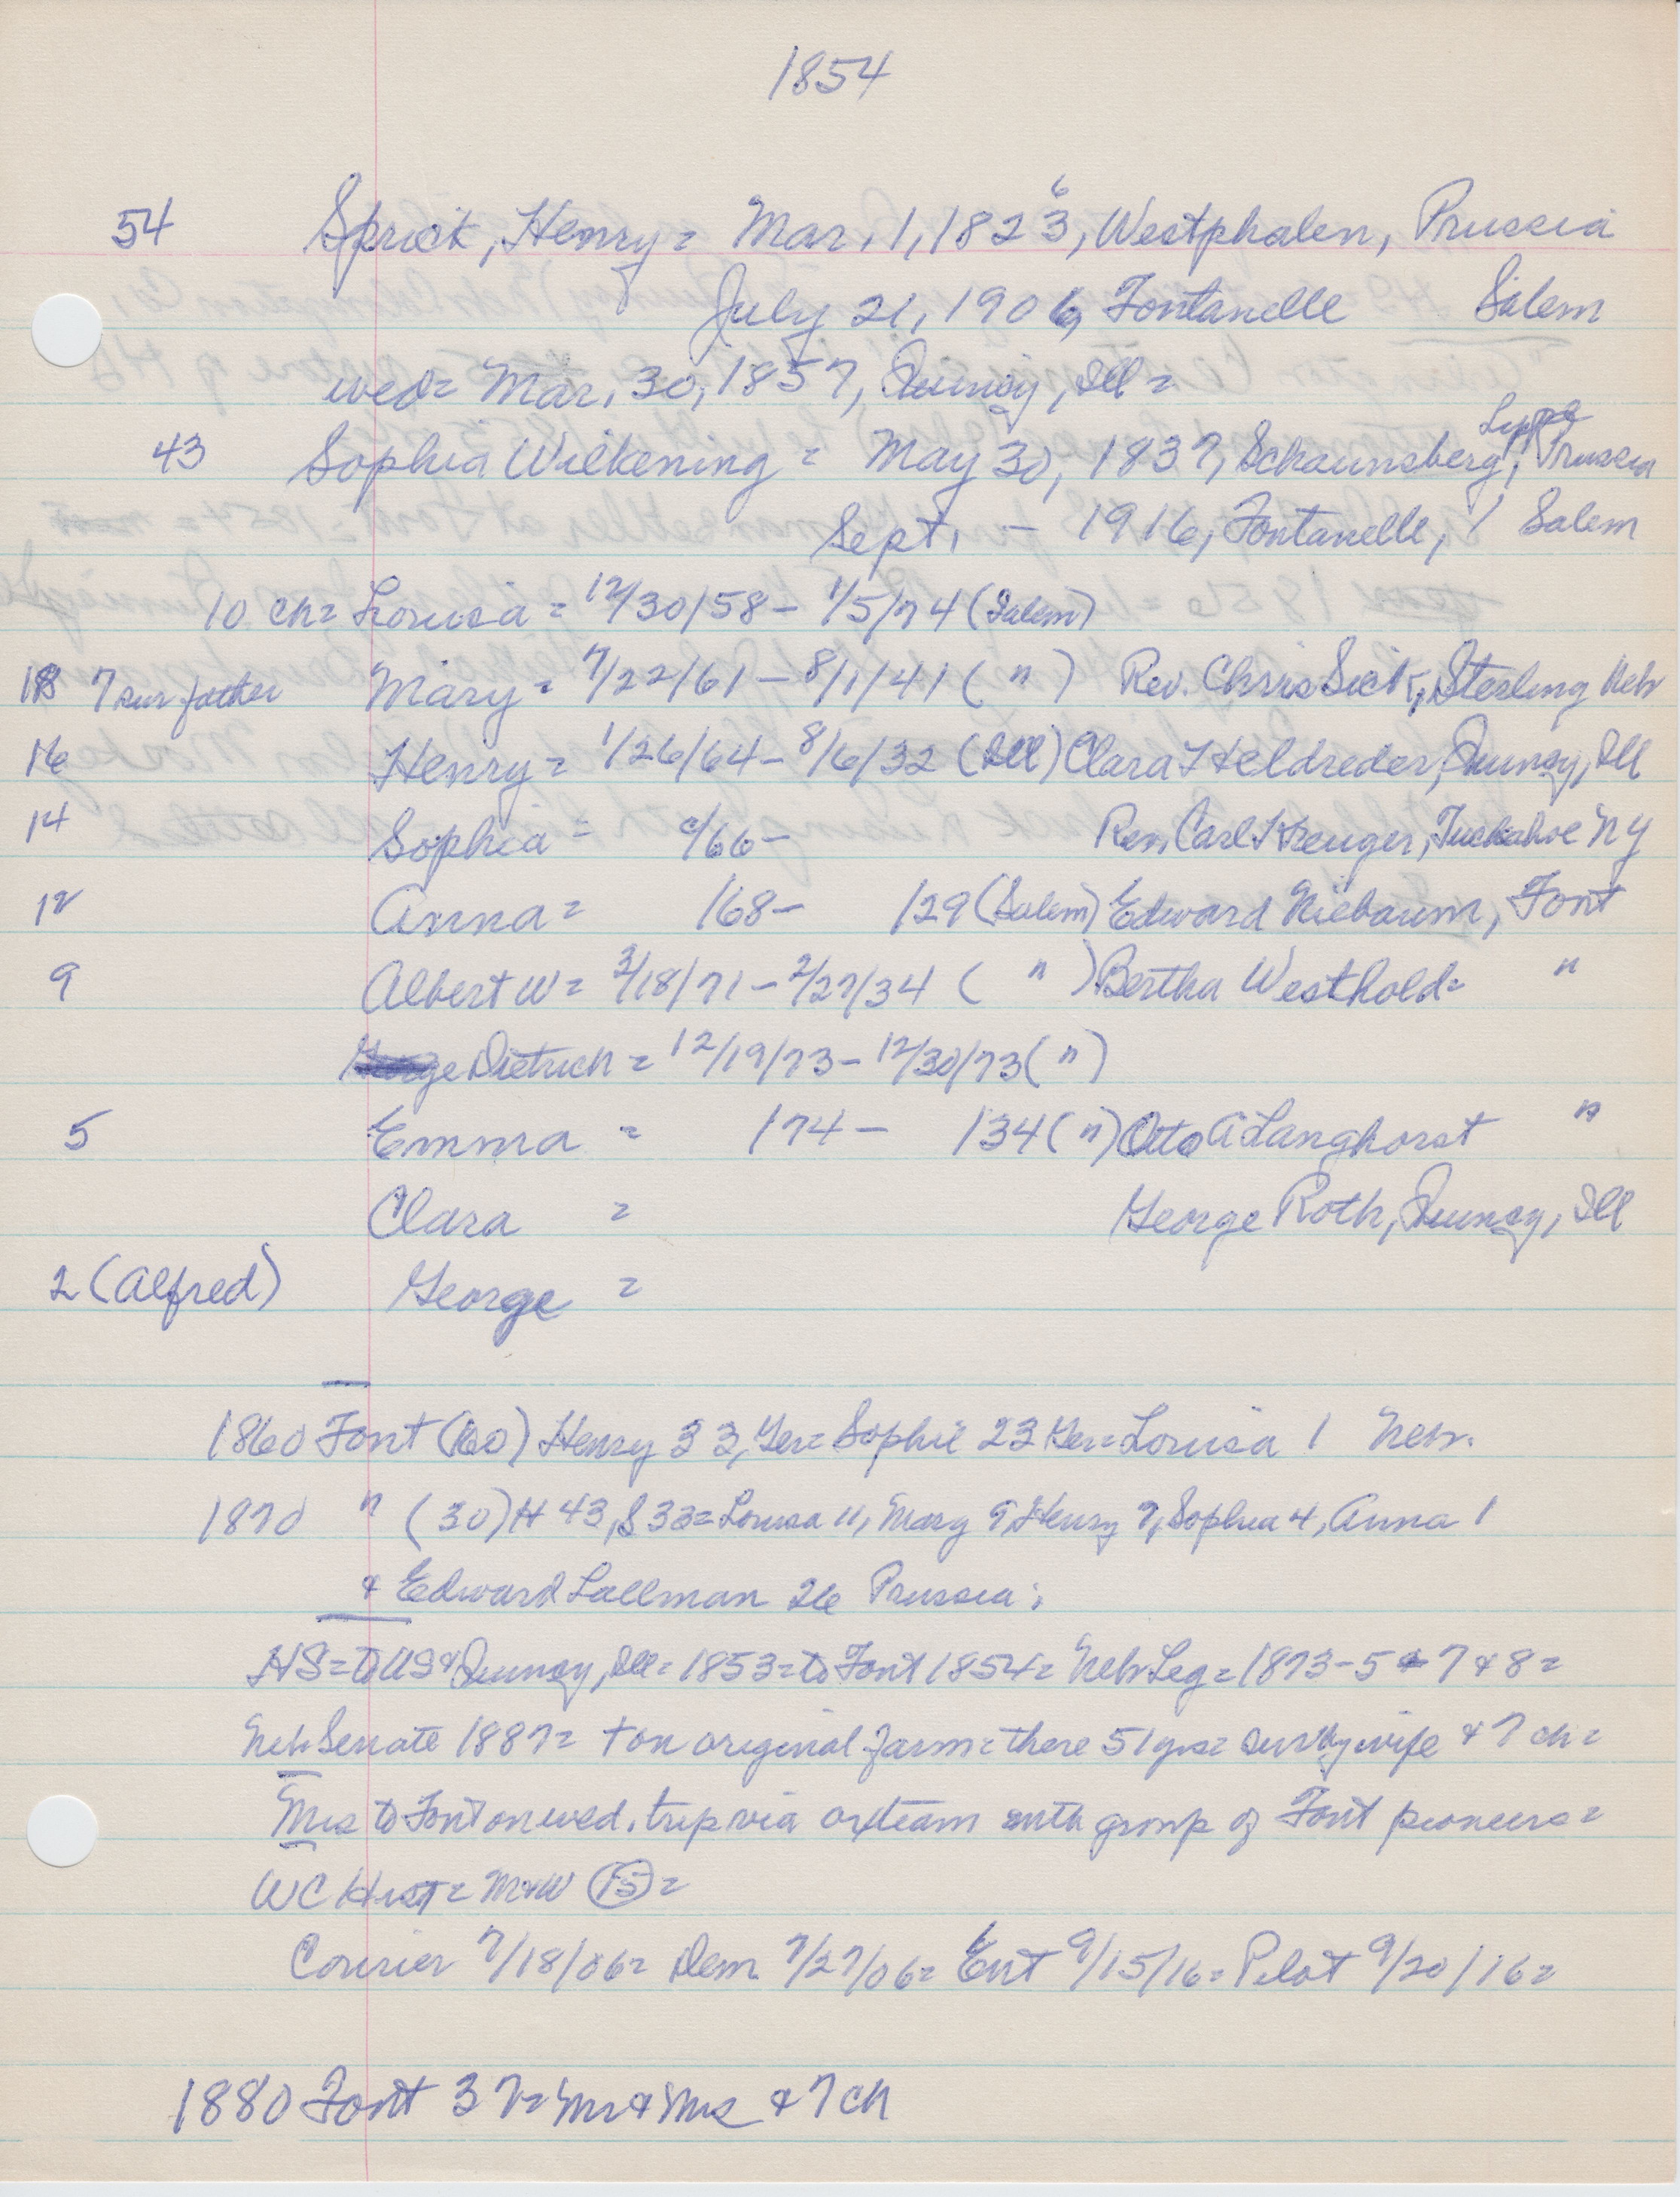 1854
6
54 Sprick, Henry = Mar. 1, 1823, Westphalen, Prussia
July 21, 1906, Fontanelle Salem
wed = Mar. 30, 1857, Quincy, Ill =
Lippe
43 Sophia Wilkening = May 30, 1837, Schaumsberg, Prussia
Sept. — 1916, Fontanelle, Salem
10 ch = Louisa = 12/30/58 - 1/5/74 (Salem)
18 7 sur father Mary = 7/22/61 - 8/1/41 ( " ) Rev. Chris Sick, Sterling Neb
16 Henry = 1/26/64 - 8/6/32 (Ill) Clara Heldreder, Quincy, Ill
14 Sophia = c/66 - Rev. Carl Kreuger, Tuckahoe NY
12 Anna = /68 - /29 (Salem) Edward Niebaum, Font
9 Albert W = 3/18/71 - 2/27/34 ( " ) Bertha Westhold = "
Dietrich = 12/19/73 - 12/30/73 ( " )
5 Emma = /74 - /34 ( " ) Otto A Langhorst "
Clara = George Roth, Quincy, Ill
2 (Alfred) George =
1860 Font (160) Henry 33, Ger = Sophie 23 Ger = Louisa 1 Neb.
1870 " (30) H 43, S 33 = Louisa 11, Mary 9, Henry 7, Sophia 4, Anna 1
& Edward Lallman 26 Prussia;
HS = to US & Quincy, Ill = 1853 = to Font 1854 = Neb Leg = 1873-5 & 7 & 8 =
Neb Senate 1887 = + on original farm = there 51 yrs = surv by wife & 7 ch =
Mrs to Font on wed. trip via oxteam with group of Font pioneers =
WC Hist = M&W (15) =
Courier 7/18/06 = Dem 7/27/06 = Ent 9/15/16 = Pilot 9/20/16 =
1880 Font 37 = Mr & Mrs & 7 ch